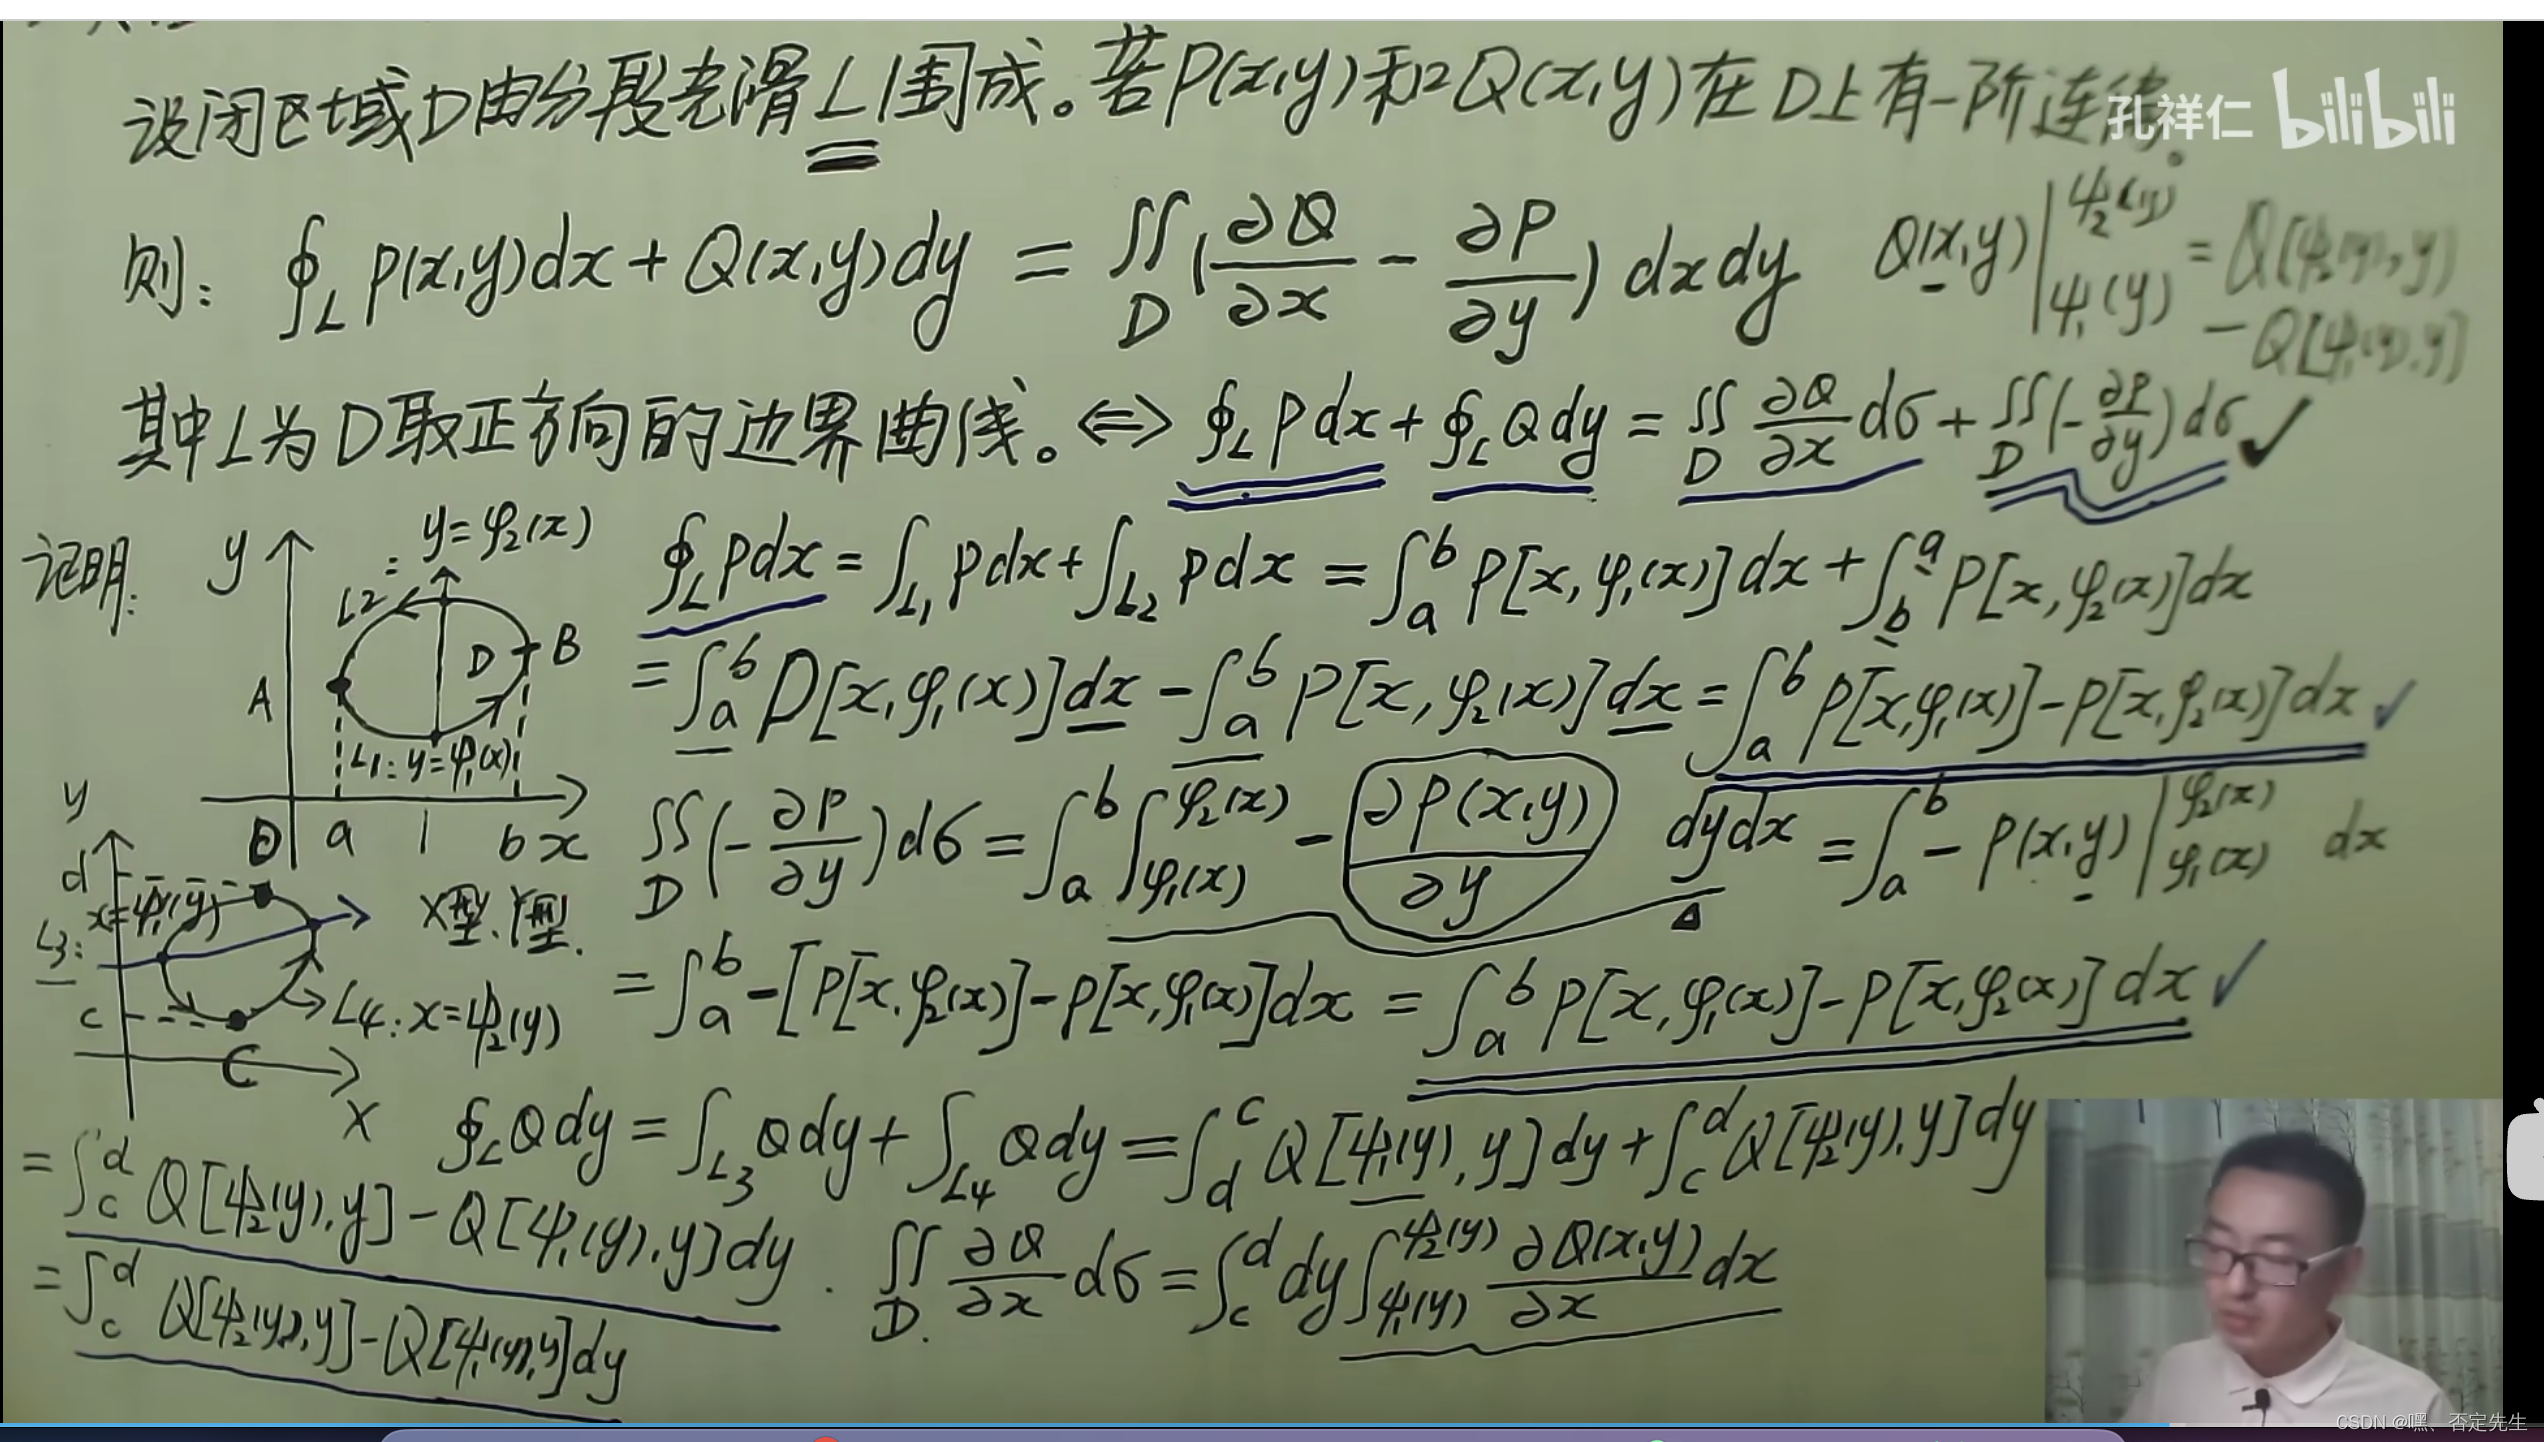 设闭区域D由分段光滑L围成。若P(x,y)和Q(x,y)在D上有一阶连续。
孔祥仁 bilibili
则: ∮_L P(x,y)dx + Q(x,y)dy = ∬_D (∂Q/∂x - ∂P/∂y) dxdy
Q(x,y)|_{ψ₁(y)}^{ψ₂(y)} = Q(ψ₂(y),y)
- Q[ψ₁(y),y]
其中L为D取正方向的边界曲线。⇔ ∮_L Pdx + ∮_L Qdy = ∬_D ∂Q/∂x dσ + ∬_D (-∂P/∂y) dσ ✓
证明:
y
L2: y=φ₂(x)
A
D
B
L₁: y=φ₁(x)
O a b x
∮_L Pdx = ∫_{L₁} Pdx + ∫_{L₂} Pdx = ∫_a^b P[x,φ₁(x)]dx + ∫_b^a P[x,φ₂(x)]dx
= ∫_a^b P[x,φ₁(x)]dx - ∫_a^b P[x,φ₂(x)]dx = ∫_a^b P[x,φ₁(x)]-P[x,φ₂(x)]dx ✓
∬_D (-∂P/∂y) dσ = ∫_a^b ∫_{φ₁(x)}^{φ₂(x)} - ∂P(x,y)/∂y dydx = ∫_a^b - P(x,y)|_{φ₁(x)}^{φ₂(x)} dx
= ∫_a^b -[P[x,φ₂(x)]-P[x,φ₁(x)]]dx = ∫_a^b P[x,φ₁(x)]-P[x,φ₂(x)]dx ✓
y
d
x=ψ₁(y)
L3:
X型、Y型.
L4: x=ψ₂(y)
c
C
x
∮_L Qdy = ∫_{L₃} Qdy + ∫_{L₄} Qdy = ∫_d^c Q[ψ₁(y),y]dy + ∫_c^d Q[ψ₂(y),y]dy
= ∫_c^d Q[ψ₂(y),y]-Q[ψ₁(y),y]dy .
∬_D ∂Q/∂x dσ = ∫_c^d dy ∫_{ψ₁(y)}^{ψ₂(y)} ∂Q(x,y)/∂x dx
= ∫_c^d Q[ψ₂(y),y]-Q[ψ₁(y),y]dy
CSDN @嘿、否定先生